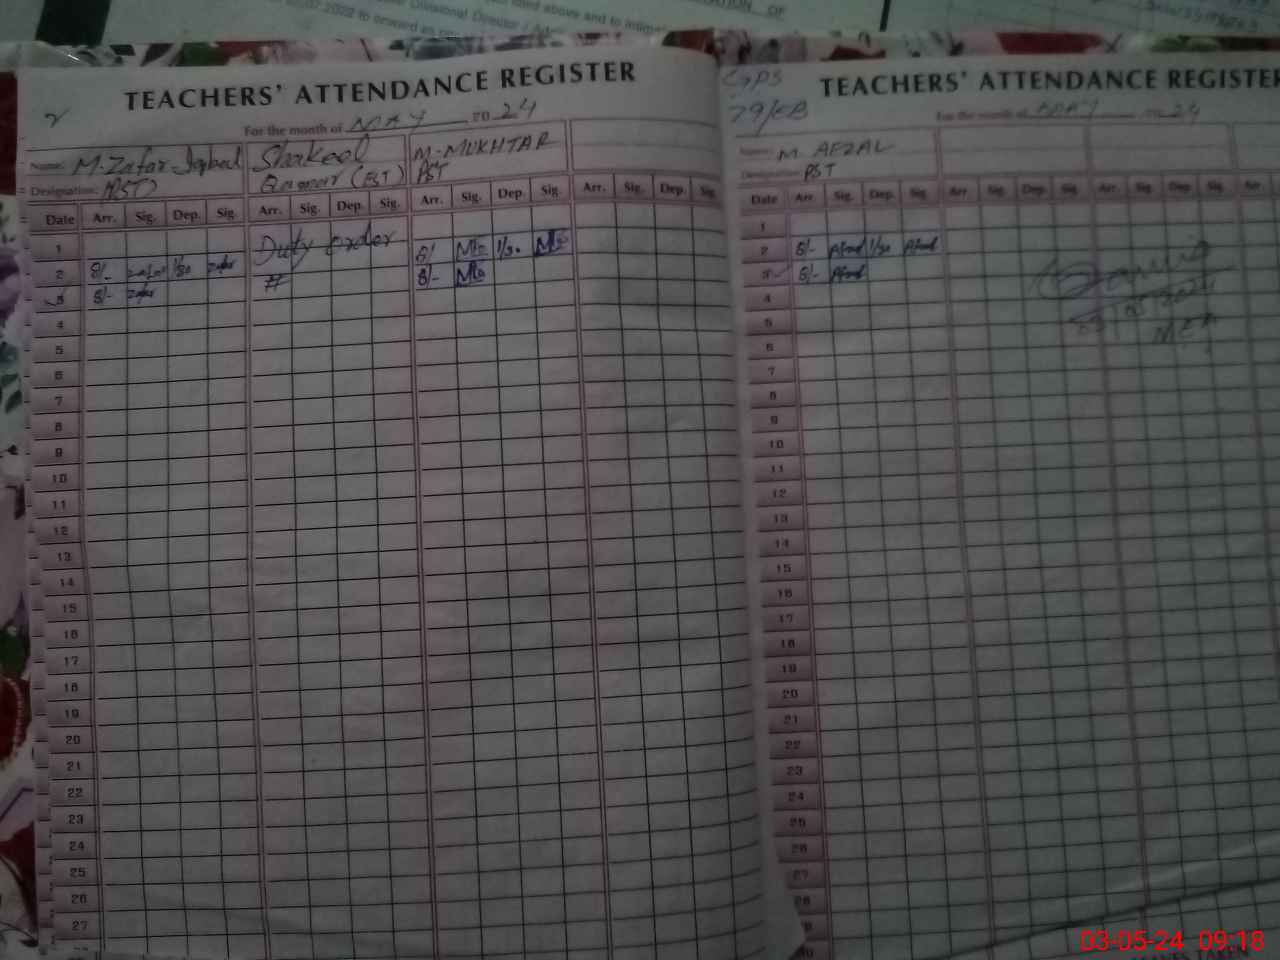 TION OF
05/07/2022 to onward as
Divisional Director /
above and to
TEACHERS' ATTENDANCE REGISTER
For the month of MAY 2024
Name: M. Zafar Iqbal Shakeel M. MUKHTAR
Designation: (PST) Qamar (EST) PST
Date Arr. Sig. Dep. Sig. Arr. Sig. Dep. Sig. Arr. Sig. Dep. Sig. Arr. Sig. Dep. Sig.
1 Duty order
2 8/- Zafar 1/30 Zafar 〃 8/- 1/30
3 8/- Zafar 8/-
4
5
6
7
8
9
10
11
12
13
14
15
16
17
18
19
20
21
22
23
24
25
26
27
GPS
79/EB
TEACHERS' ATTENDANCE REGISTER
For the month of MAY 2024
Name: M. AFZAL
Designation: PST
Date Arr. Sig. Dep. Sig. Arr Sig. Dep. Sig. Arr. Sig. Dep. Sig. Arr.
1
2 8/- Afzal 1/30 Afzal
3 8/- Afzal
4
5
6
7
8
9
10
11
12
13
14
15
16
17
18
19
20
21
22
23
24
25
26
27
28
03/05/2024
MEA
03-05-24 09:18